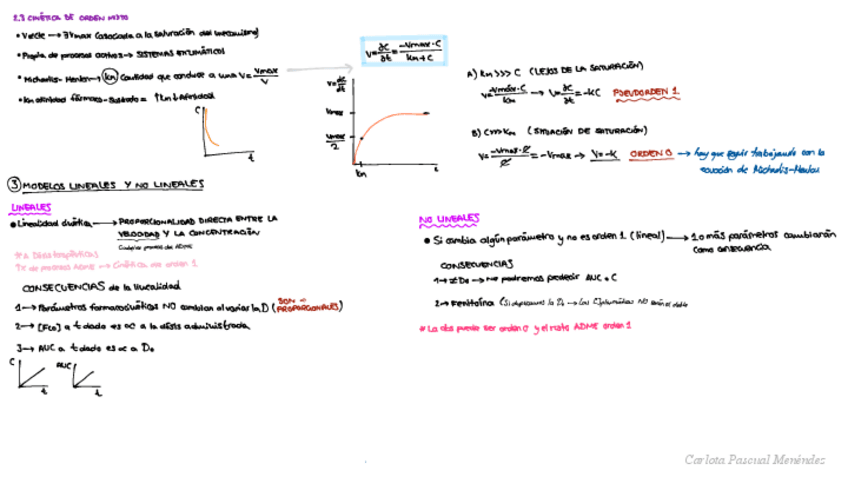 2.3 CINÉTICA DE ORDEN MIXTO
• Varde → ∃ Vmax (asociada a la saturación del mecanismo)
• Propia de procesos activos → SISTEMAS ENZIMÁTICOS
• Michaelis-Menten → (km) Cantidad que conduce a una V = Vmax / V
• km afinidad fármaco-sustrato = ↑km ↓ afinidad
C
t
V = ∂C/∂t = -Vmax · C / km + C
V = ∂C/∂t
Vmax
Vmax/2
km
c
A) km >>> C (LEJOS DE LA SATURACIÓN)
V = -Vmax · C / km → V = ∂C/∂t = -KC PSEUDORDEN 1
B) C>>> Km (SITUACIÓN DE SATURACIÓN)
V = -Vmax · C / C = -Vmax → V = -K ORDEN 0 → hay que seguir trabajando con la
ecuación de Michaelis-Menten
③ MODELOS LINEALES Y NO LINEALES
LINEALES
• Linealidad cinética → PROPORCIONALIDAD DIRECTA ENTRE LA
VELOCIDAD Y LA CONCENTRACIÓN
Cualquier proceso de ADME
Cinética de orden 1
CONSECUENCIAS de la linealidad
1→ Parámetros farmacocinéticos NO cambian al variar la D (SON PROPORCIONALES)
2→ [Fco] a t dado es ∝ a la dosis administrada
3→ AUC a t dado es ∝ a D₀
C
t
AUC
t
NO LINEALES
• Si cambia algún parámetro y no es orden 1 (lineal) → 1 o más parámetros cambiarán
como consecuencia
CONSECUENCIAS
1→ ≠ D₀ → No podremos predecir AUC o C
2→ Fenitoína (Si duplicamos la D₀ → las C plasmáticas NO serán el doble
* La abs puede ser orden 0 y el resto ADME orden 1
Carlota Pascual Menéndez